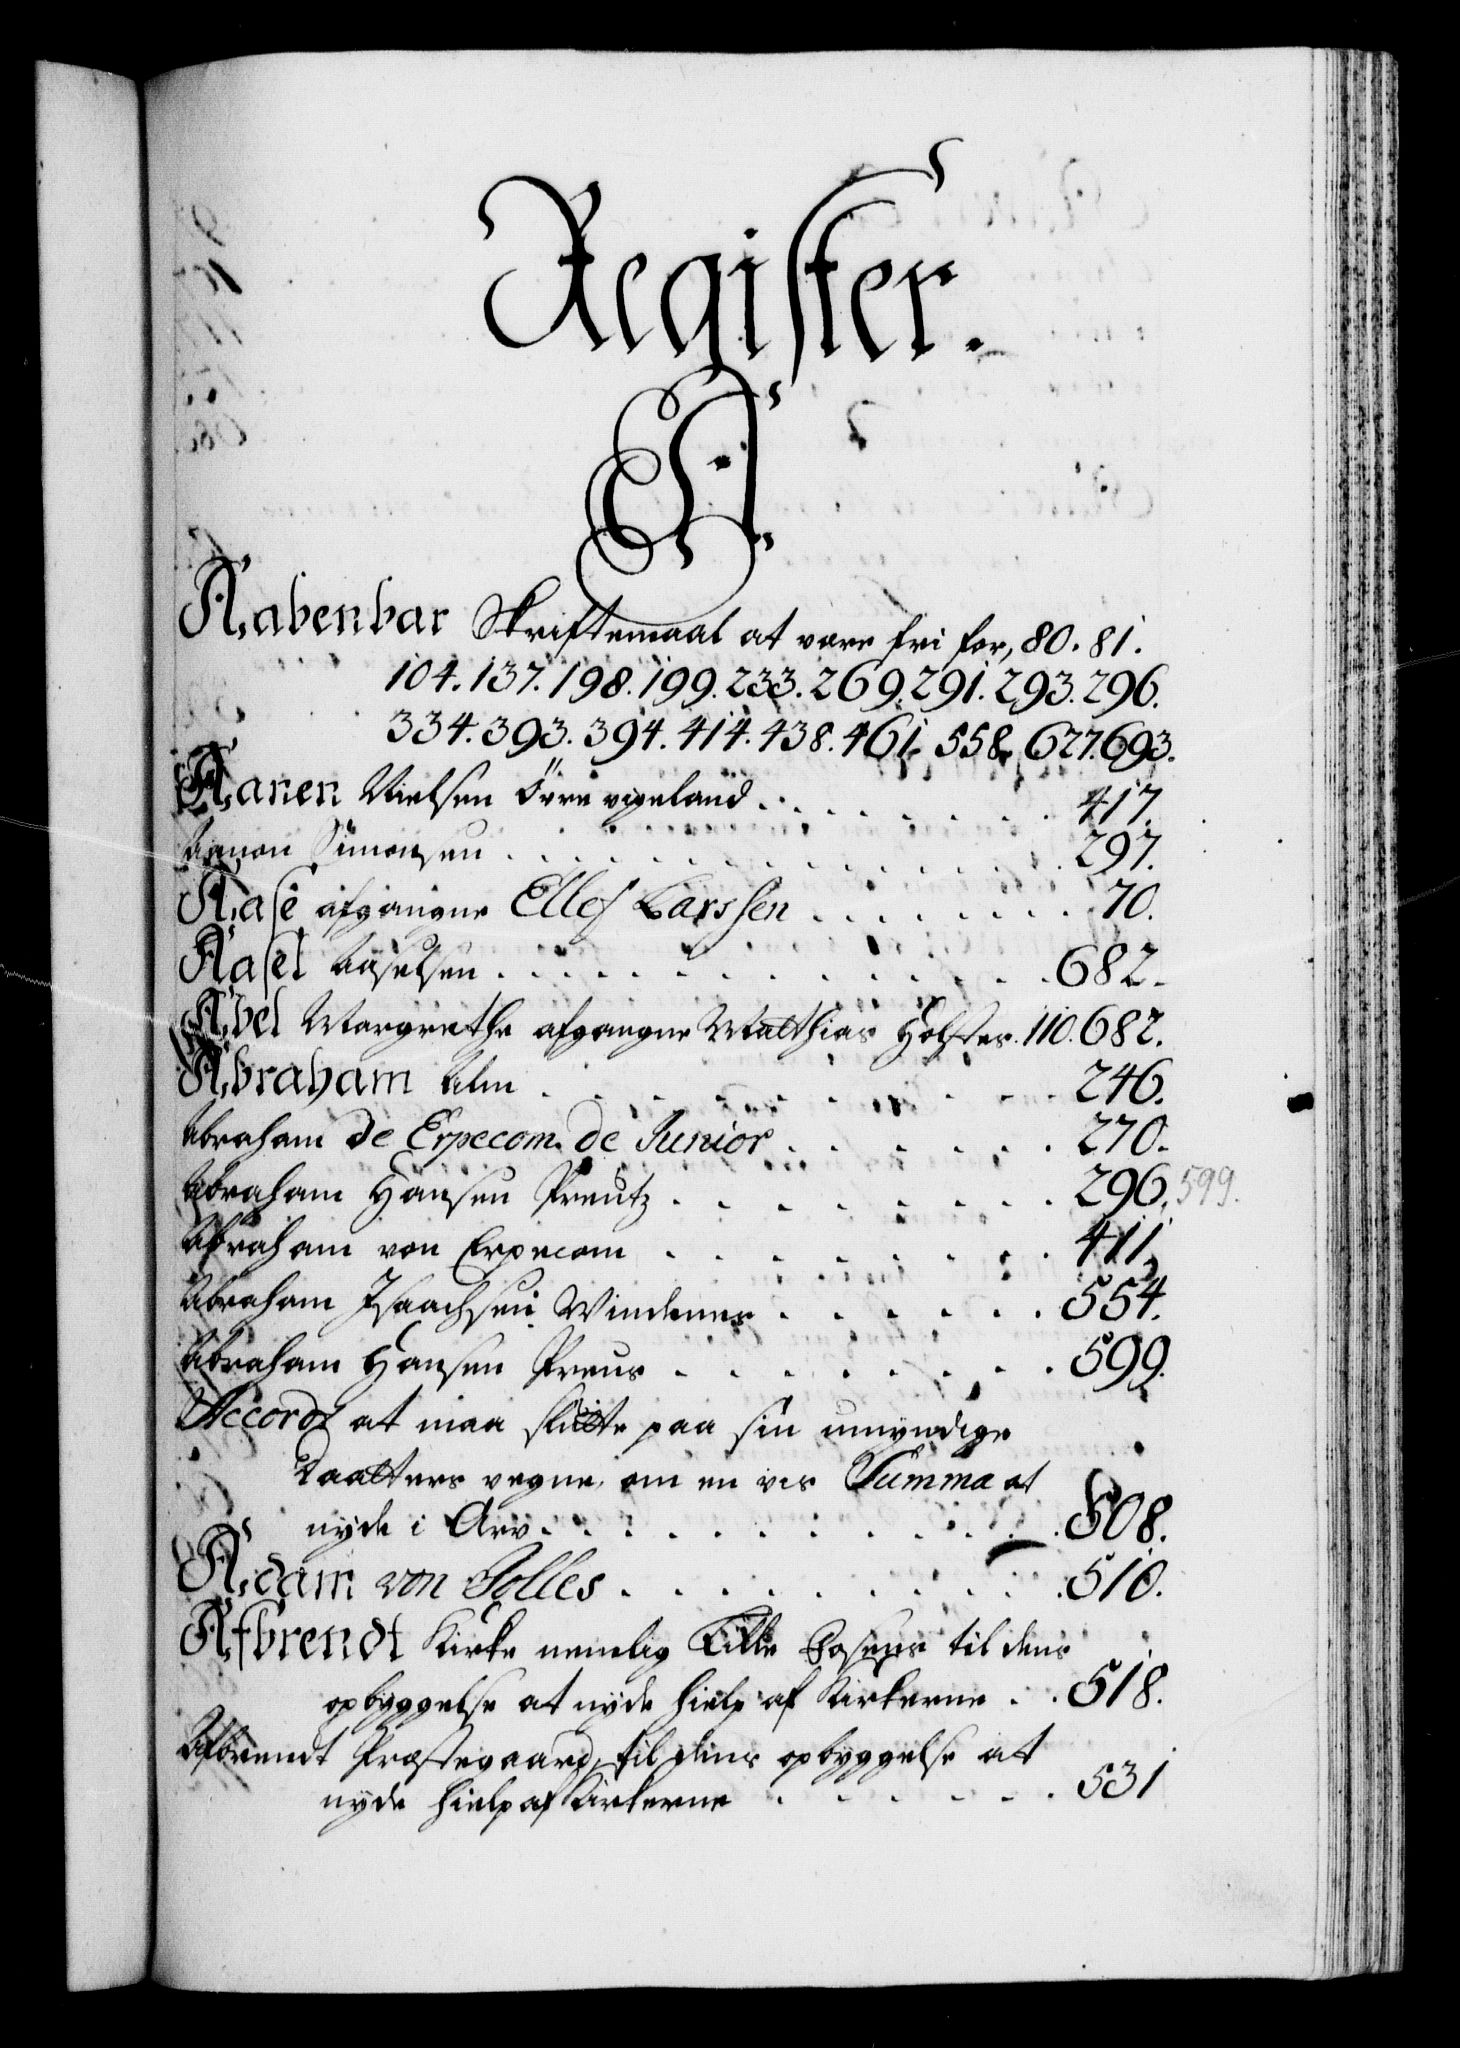 Register.
A.
Aabenbar Skriftemaal at være fri for, 80. 81.
104. 137. 198. 199. 233. 269. 291. 293. 296.
334. 393. 394. 414. 438. 461. 558. 627. 693.
Aanen Nielsen Övre vigeland . . . 417.
Aanon Simonsen . . . 297.
Aase afgangne Ellef Larssen . . . 70.
Aasel Aaselsen . . . 682.
Abel Margrethe afgangne Matthias Holster. 110. 682.
Abraham Alm . . . 246.
Abraham de Erpecom de Junior . . . 270.
Abraham Hansen Preutz . . . 296. 599.
Abraham von Erpecom . . . 411.
Abraham Isaachsen Windenes . . . 554.
Abraham Hansen Preus . . . 599.
Accord at maa slutte paa sin umyndige
Daatters vegne, om en vis Summa at
nyde i Arv . . . 508.
Adam von Jolles . . . 510.
Afbrendt Kirke nemlig Lille til dens
opbyggelse at nyde hielp af Kirkerne . . 518.
Afbrendt Præstegaard, til dens opbyggelse at
nyde hielp af Kirkerne . . . 531